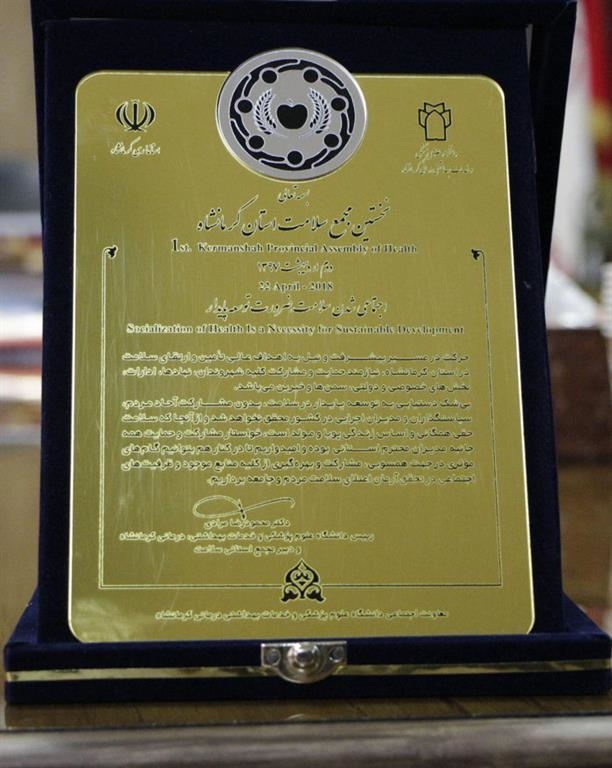 بسمه تعالی
استانداری کرمانشاه
نخستین مجمع سلامت استان کرمانشاه
1st. Kermanshah Provincial Assembly of Health
دوم اردیبهشت ۱۳۹۷
22 April - 2018
اجتماعی شدن سلامت ضرورت توسعه پایدار
Socialization of Health Is a Necessity for Sustainable Development
حرکت در مسیر پیشرفت و نیل به اهداف عالی تأمین و ارتقای سلامت
در استان کرمانشاه، نیازمند حمایت و مشارکت کلیه شهروندان، نهادها، ادارات،
بخش های خصوصی و دولتی، سمن‌ها و خیرین می‌باشد.
بی‌شک دستیابی به توسعه پایدار در سلامت، بدون مشارکت آحاد مردم،
سیاستگذاران و مدیران اجرایی در کشور محقق نخواهد شد و از آنجا که سلامت
حقی همگانی و اساس زندگی پویا و مولد است، خواستار مشارکت و حمایت همه
جانبه مدیران محترم استانی بوده و امیدواریم تا در کنار هم بتوانیم گام‌های
موثری در جهت همسویی، مشارکت و بهره‌گیری از کلیه منابع موجود و ظرفیت های
اجتماعی در تحقق آرمان اعتلای سلامت مردم و جامعه برداریم.
دکتر محمودرضا مرادی
رییس دانشگاه علوم پزشکی و خدمات بهداشتی، درمانی کرمانشاه
و دبیر مجمع استانی سلامت
معاونت اجتماعی دانشگاه علوم پزشکی و خدمات بهداشتی درمانی کرمانشاه